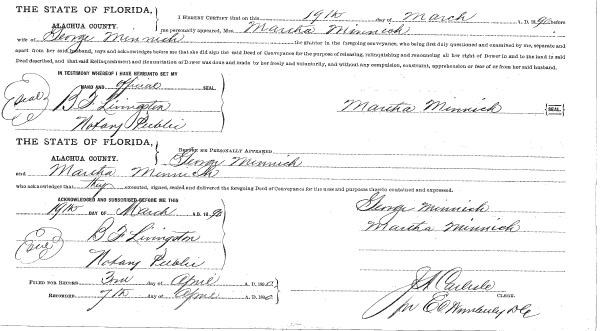 THE STATE OF FLORIDA,
ALACHUA COUNTY.
I HEREBY CERTIFY that on this 19th day of March A. D. 1890 before
me personally appeared, Mrs. Martha Minnick
wife of George Minnick the grantor in the foregoing conveyance, who being first duly questioned and examined by me, separate and
apart from her said husband, says and acknowledges before me that she did sign the said Deed of Conveyance for the purpose of releasing, relinquishing and renouncing all her right of Dower in and to the land in said
Deed described, and that said Relinquishment and Renunciation of Dower was done and made by her freely and voluntarily, and without any compulsion, constraint, apprehension or fear of or from her said husband.
IN TESTIMONY WHEREOF I HAVE HEREUNTO SET MY
HAND AND official SEAL.
Seal
B F Livingston
Notary Public
Martha Minnick SEAL.
THE STATE OF FLORIDA,
ALACHUA COUNTY.
BEFORE ME PERSONALLY APPEARED George Minnick
and Martha Minnick
who acknowledged that they executed, signed, sealed and delivered the foregoing Deed of Conveyance for the uses and purposes therein contained and expressed.
ACKNOWLEDGED AND SUBSCRIBED BEFORE ME THIS
19th DAY OF March A. D. 1890
Seal
B F Livingston
Notary Public
George Minnick
Martha Minnick
FILED FOR RECORD 3rd day of April A. D. 1890
RECORDED 7th day of April A. D. 1890
J A Carlisle CLERK.
per E C Wimberly D C